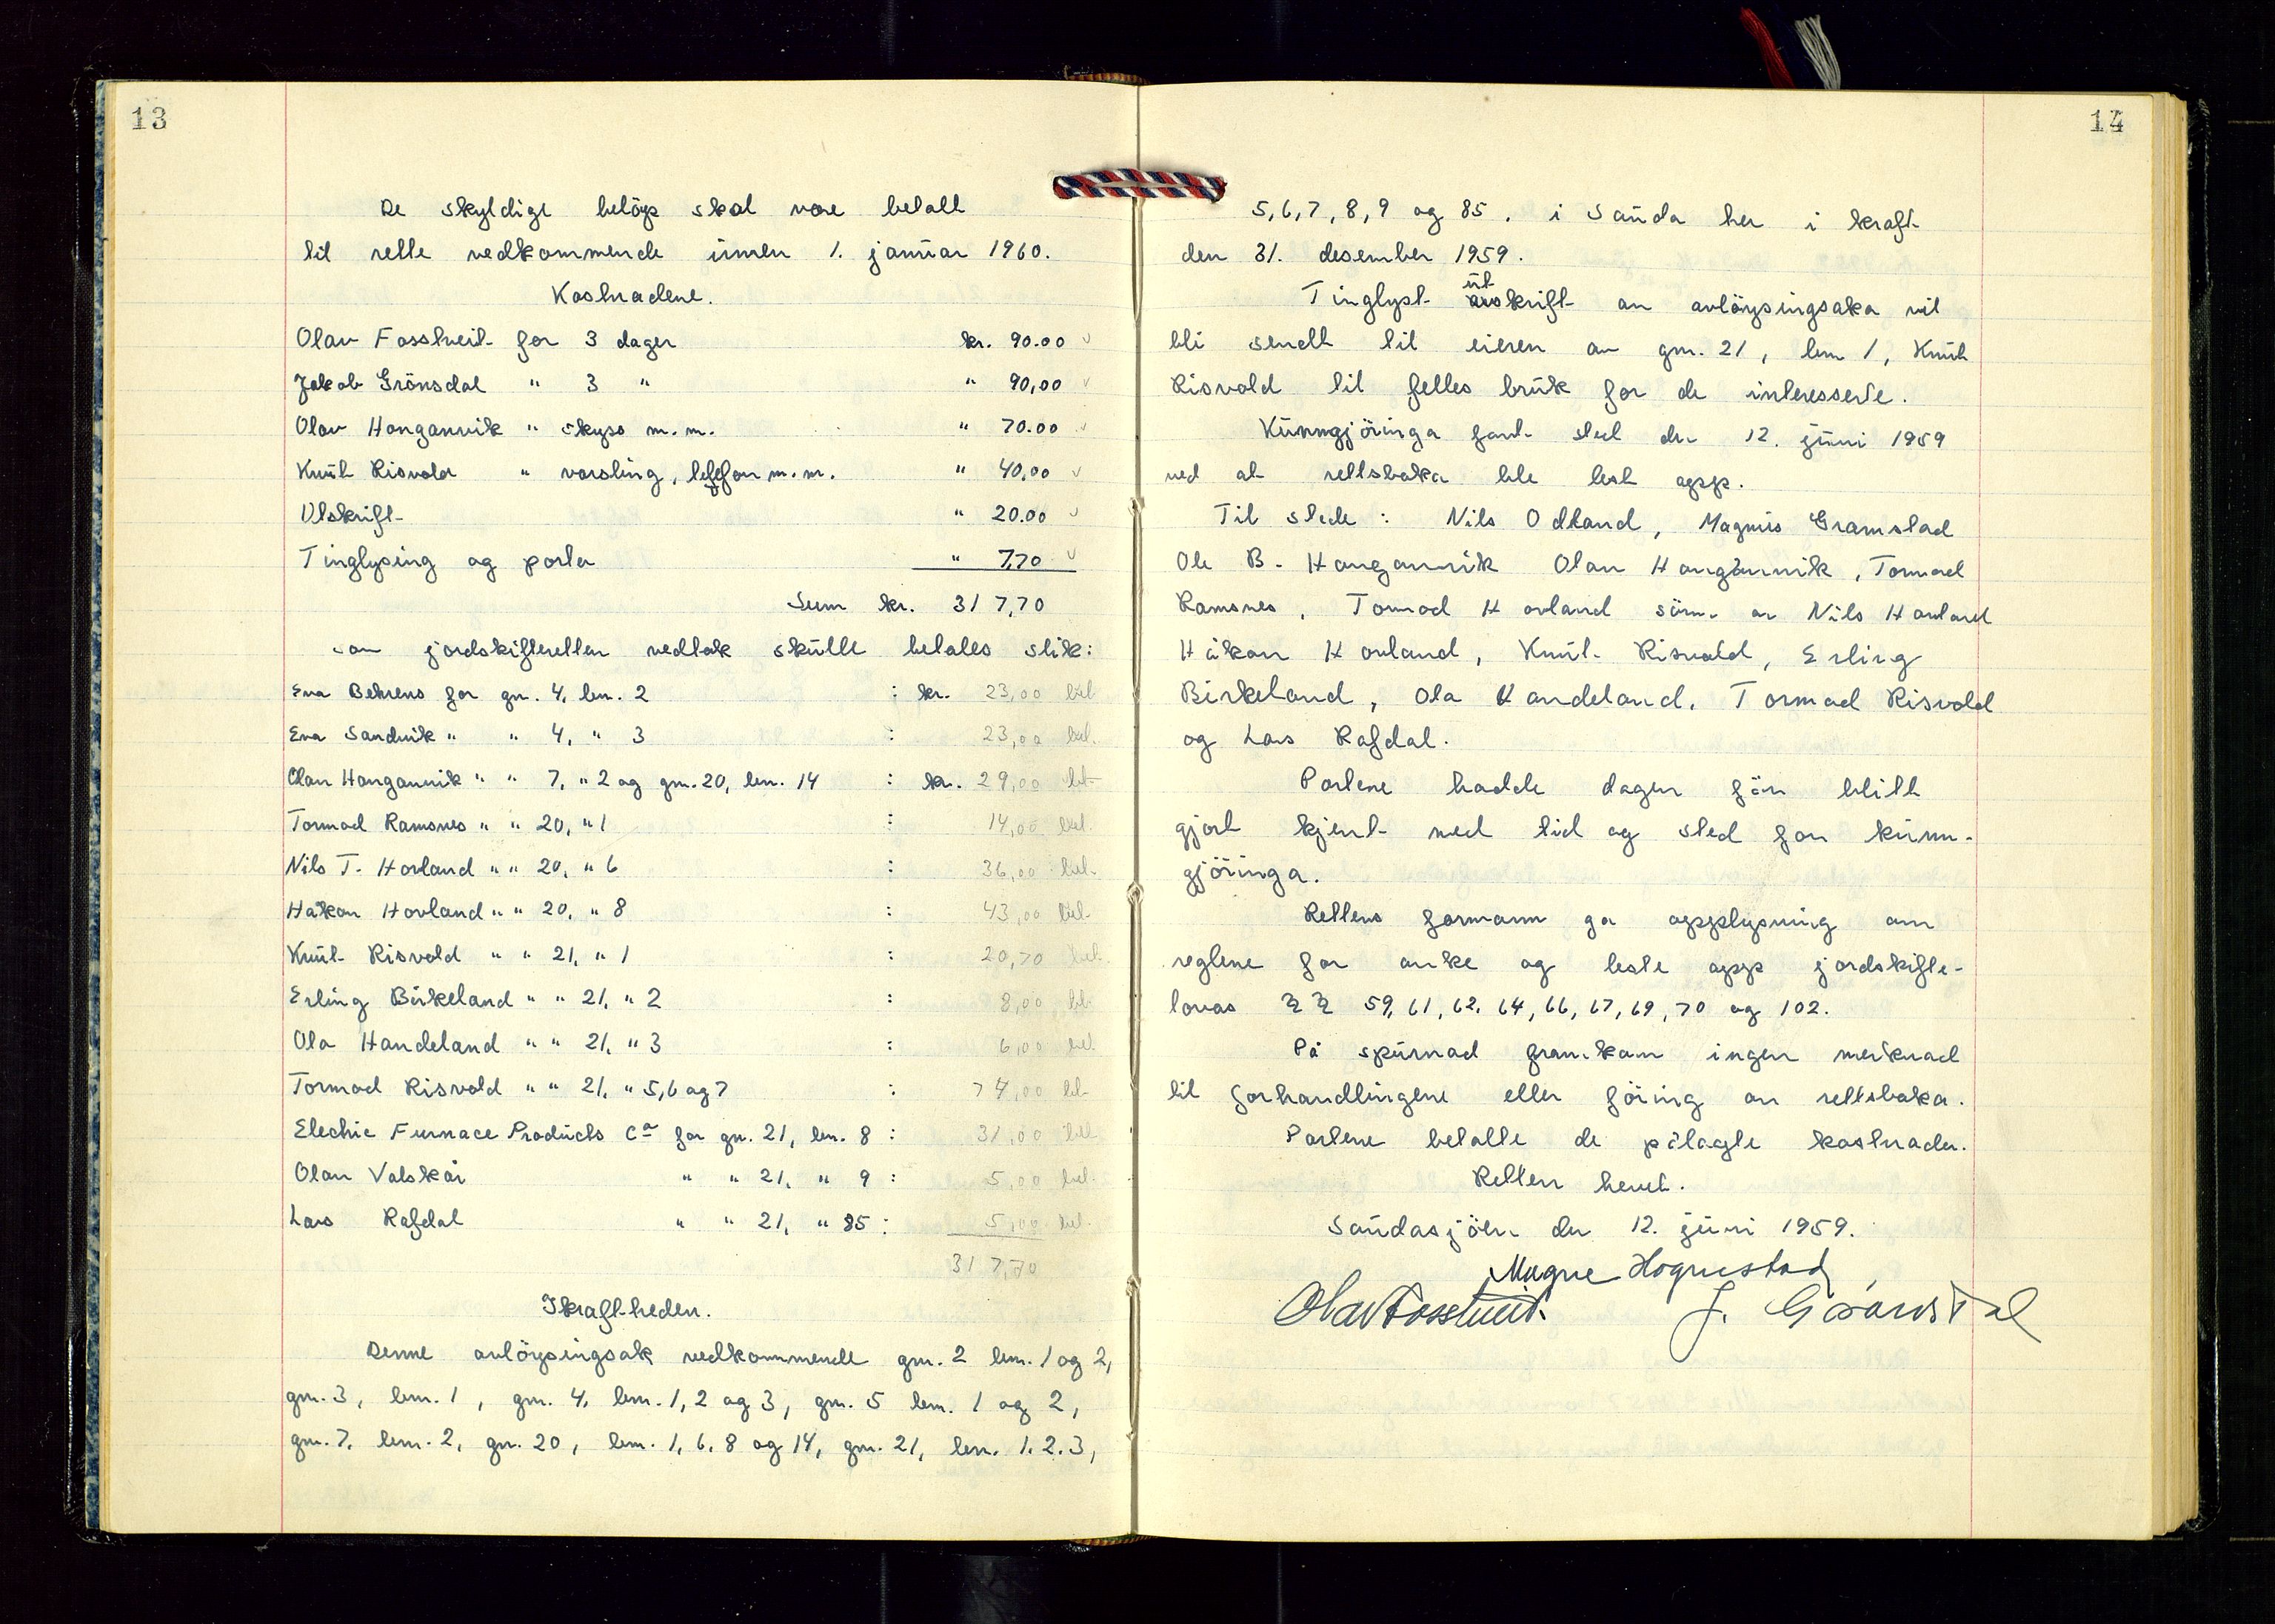 13
De skyldige beløp skal være betalt
til rette vedkommende innen 1. januar 1960.
Kostnadene.
Olav Fosstveit for 3 dager kr. 90.00
Jakob Grönsdal " 3 " " 90,00
Olav Honganvik " skyss m.m. " 70.00
Knut Risvold " varsling, telefon m.m. " 40,00
Utskrift " 20.00
Tinglysing og porto " 7,70
Sum kr. 317,70
som jordskifteretten vedtok skulle betales slik:
Eva Behrens for gn. 4, bn. 2 : kr. 23,00 bet.
Eva Sandvik " " 4, " 3 : 23,00 bet.
Olav Honganvik " " 7, " 2 og gnr. 20, bn. 14 : kr. 29,00 bet.
Tormod Ramsnes " " 20, " 1 : 14,00 bet.
Nils T. Hovland " " 20, " 6 : 36,00 bet.
Håkon Hovland " " 20, " 8 : 43,00 bet.
Knut Risvold " " 21, " 1 : 20,70 bet.
Erling Birkeland " " 21, " 2 : 8,00 bet.
Ola Handeland " " 21, " 3 : 6,00 bet.
Tormod Risvold " " 21, " 5,6 og 7 : 74,00 bet.
Electric Furnace Products Co for gn. 21, bn. 8 : 31,00 bet.
Olav Valskår " " 21, " 9 : 5,00 bet.
Lars Rafdal " " 21, " 85 : 5,00 bet.
317,70
Ikraft-treden.
Denne avlöysingsak vedkommende gnr. 2 bnr. 1 og 2,
gnr. 3, bnr. 1, gnr. 4, bnr. 1, 2 og 3, gnr. 5 bnr. 1 og 2,
gnr. 7, bnr. 2, gn. 20, bnr. 1, 6, 8 og 14, gnr. 21, bnr. 1. 2. 3,
14
5, 6, 7, 8, 9 og 85. i Sauda trer i kraft
den 31. desember 1959.
Tinglyst utskrift av avlöysingsaka vil
bli sendt til eieren av gnr. 21, bnr 1, Knut
Risvold til felles bruk for de interesserte.
Kunngjöringa fant sted den 12. juni 1959
ved at rettsboka ble lest opp.
Til stede : Nils Odland, Magnus Gramstad
Ole B. Honganvik Olav Honganvik, Tormod
Ramsnes, Tormod Hovland sönn av Nils Hovland
Håkon Hovland, Knut Risvold, Erling
Birkeland, Ola Handeland, Tormod Risvold
og Lars Rafdal.
Partene hadde dagen för blitt
gjort kjent med tid og sted for kunn-
gjöringa.
Rettens formann ga opplysning om
reglene for anke og leste opp jordskifte-
lovas §§ 59, 61, 62, 64, 66, 67, 69, 70 og 102.
På spörsmål framkom ingen merknad
til forhandlingene eller föring av rettsboka.
Partene betalte de pålagte kostnader.
Retten hevet.
Saudasjöen den 12. juni 1959.
Magne Hognestad
Olav Fosstveit. J. Grønsdal